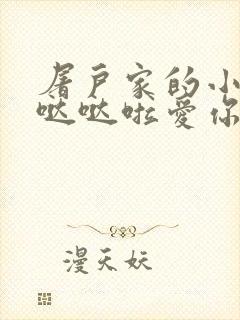 屠户家的小
哒哒啦爱你
漫天妖